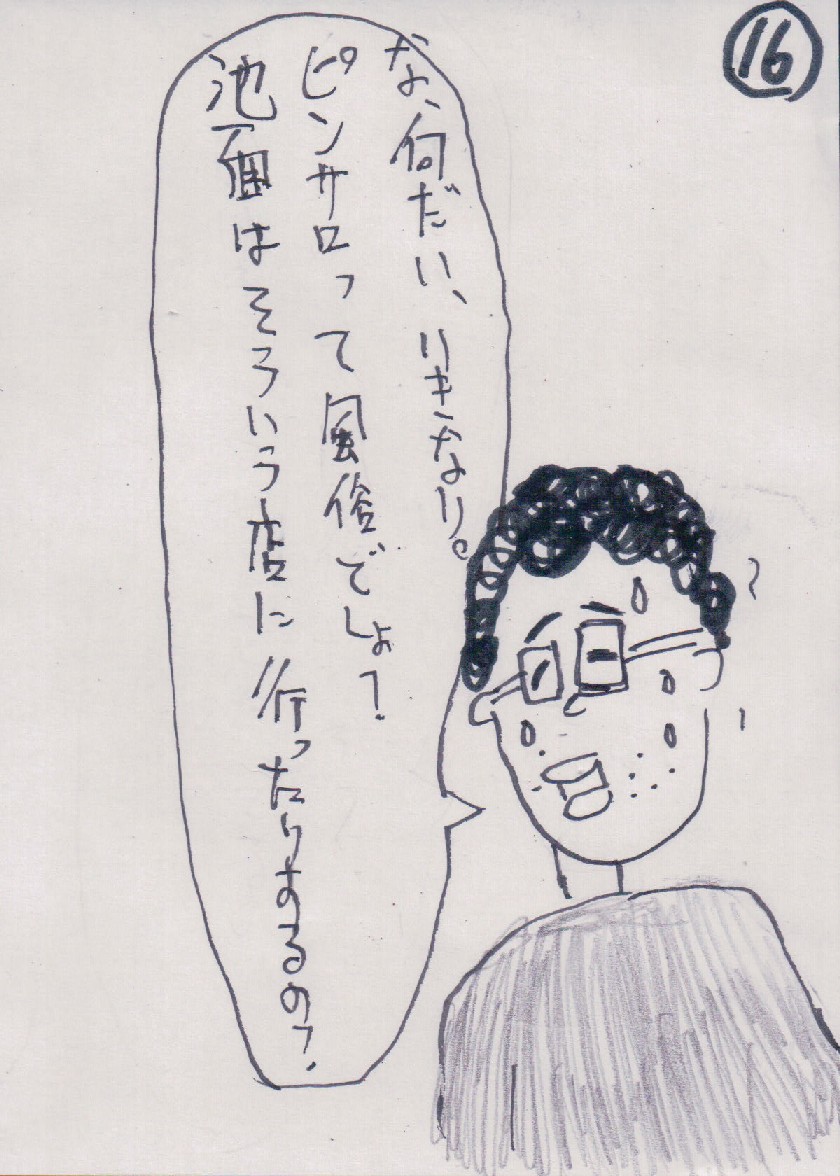 16
な、何だい、いきなり。
ピンサロって風俗でしょ?
池面はそういう店に行ったりするの?